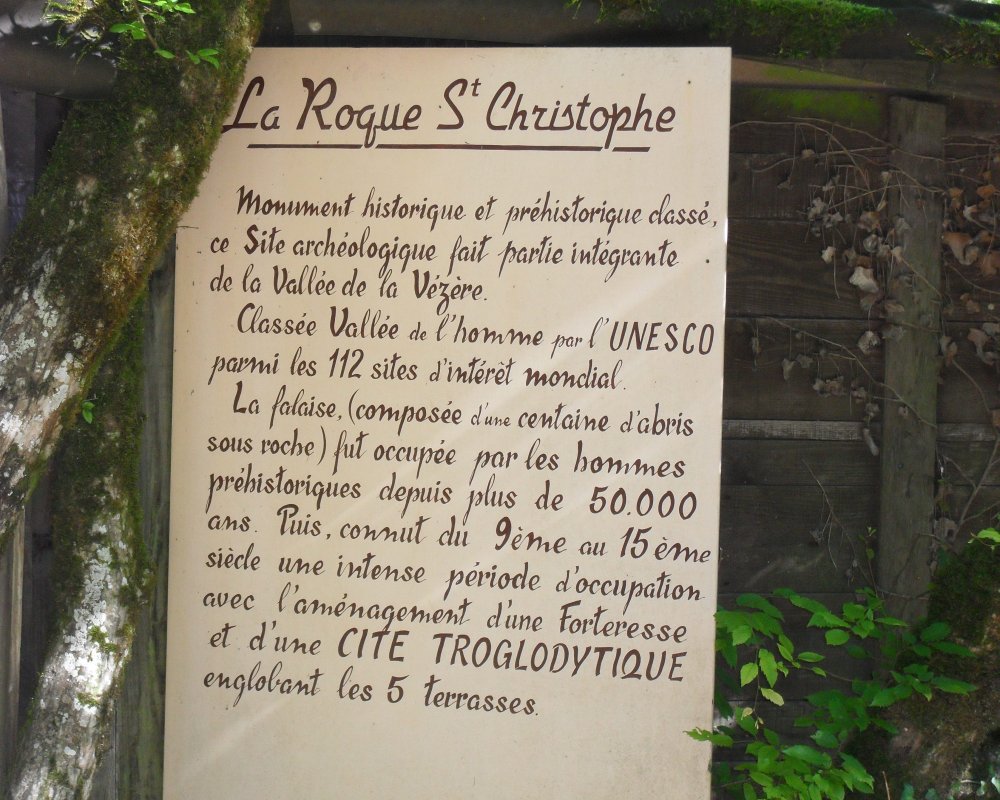 La Roque St Christophe
Monument historique et préhistorique classé,
ce Site archéologique fait partie intégrante
de la Vallée de la Vézère.
Classée Vallée de l'homme par l'UNESCO
parmi les 112 sites d'intérêt mondial.
La falaise, (composée d'une centaine d'abris
sous roche) fut occupée par les hommes
préhistoriques depuis plus de 50.000
ans. Puis, connut du 9ème au 15ème
siècle une intense période d'occupation
avec l'aménagement d'une Forteresse
et d'une CITE TROGLODYTIQUE
englobant les 5 terrasses.